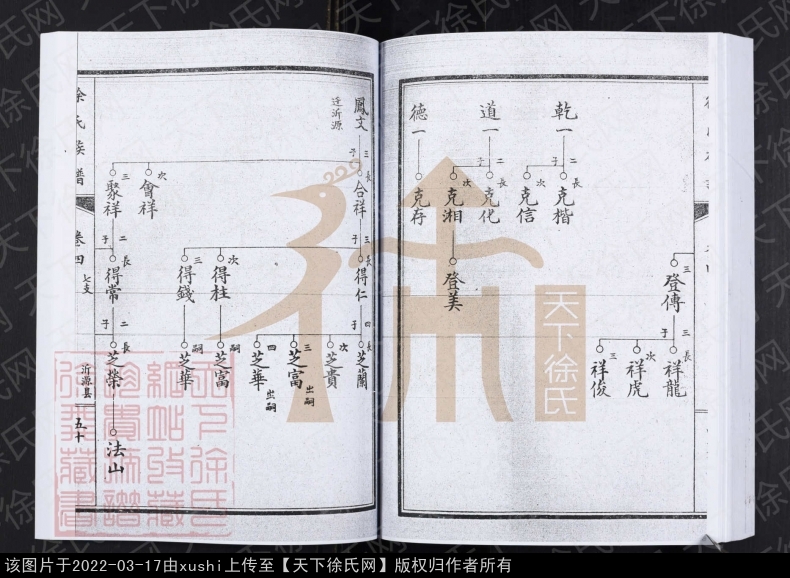 乾一
二子
長
克楷
次
克信
道一
二子
長
克化
次
克湘
登美
德一
克存
三
登傳
三子
長
祥龍
次
祥虎
三
祥俊
鳳文
遷沂源
三子
長
合祥
次
會祥
三
聚祥
三子
長
得仁
次
得桂
三
得錢
二子
長
得常
四子
長
芝蘭
次
芝貴
三
芝富
出嗣
四
芝華
出嗣
嗣
芝富
嗣
芝華
二子
長
芝榮
法山
徐氏族譜
卷四
七支
沂源县
五十
天下徐氏
天下徐氏网
该图片于2022-03-17由xushi上传至【天下徐氏网】版权归作者所有